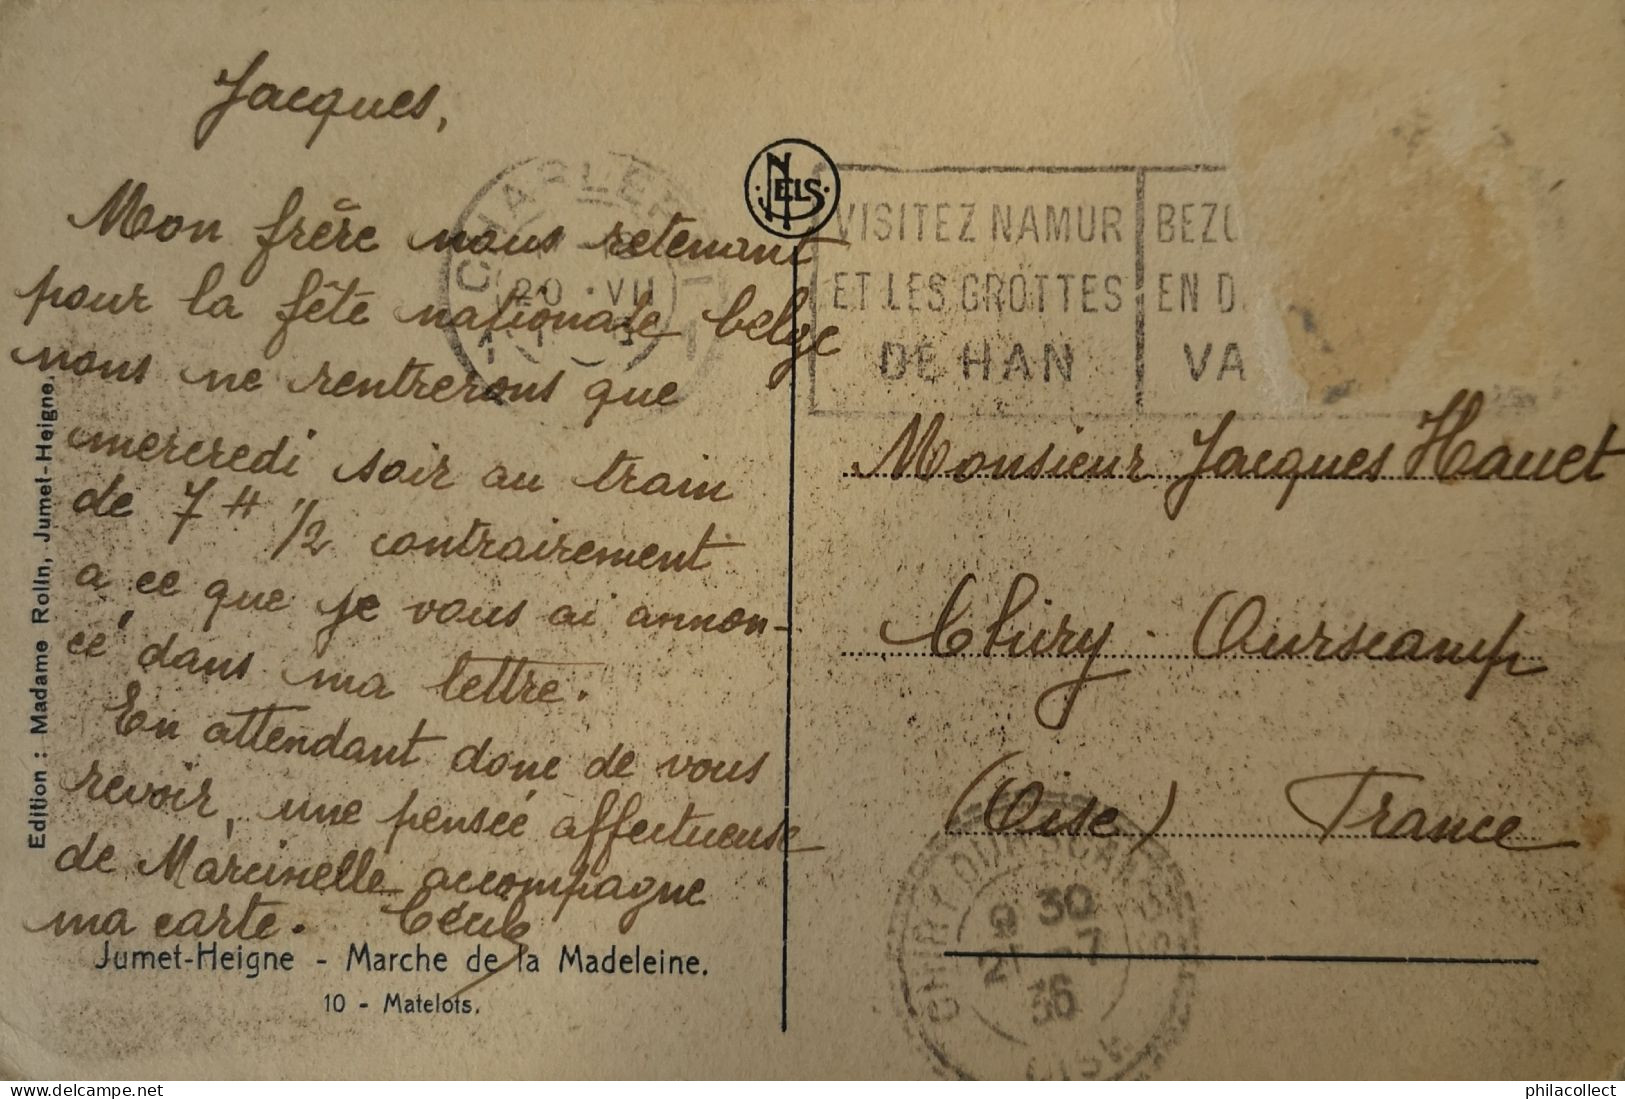 Jacques,
Mon frère nous retenant
pour la fête nationale belge
nous ne rentrerons que
mercredi soir au train
de 7 H 1/2 contrairement
a ce que je vous ai annon-
cé dans ma lettre.
En attendant donc de vous
revoir, une pensée affectueuse
de Marcinelle accompagne
ma carte. Cécile
Jumet-Heigne - Marche de la Madeleine.
10 - Matelots.
Edition : Madame Rolin, Jumet-Heigne.
NELS
CHARLER
20 · VII
VISITEZ NAMUR
ET LES GROTTES
DE HAN
BEZ
EN D
VA
Monsieur Jacques Hauet
Chiry - Ourscamp
(Oise) France
CHIRY OURSCAMP
9 30
21 -7
36
OISE
philacollect